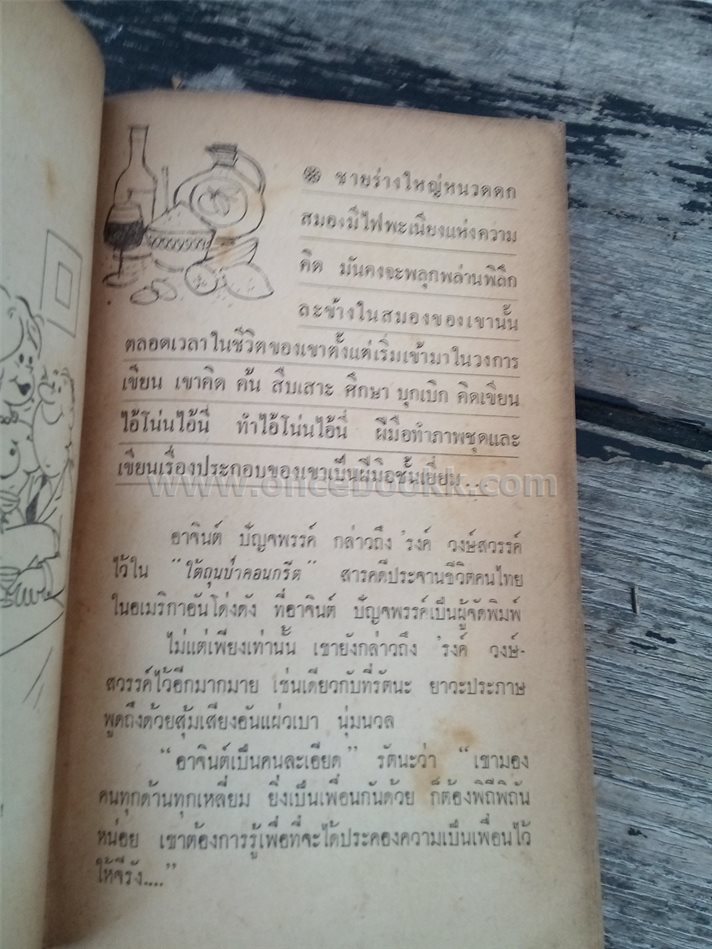 ชายร่างใหญ่หนวดดก
สมองมีไฟพะเนียงแห่งความ
คิด มันคงจะพลุกพล่านพิลึก
ละข้างในสมองของเขานั้น
ตลอดเวลาในชีวิตของเขาตั้งแต่เริ่มเข้ามาในวงการ
เขียน เขาคิด ค้น สืบเสาะ ศึกษา บุกเบิก คิดเขียน
ไอ้โน่นไอ้นี่ ทำไอ้โน่นไอ้นี่ ฝีมือทำภาพชุดและ
เขียนเรื่องประกอบของเขาเป็นฝีมือชั้นเยี่ยม...
www.oncebookk.com
อาจินต์ ปัญจพรรค์ กล่าวถึง 'รงค์ วงษ์สวรรค์
ไว้ใน "ใต้ถุนป่าคอนกรีต" สารคดีประจานชีวิตคนไทย
ในอเมริกาอันโด่งดัง ที่อาจินต์ ปัญจพรรค์เป็นผู้จัดพิมพ์
ไม่แต่เพียงเท่านั้น เขายังกล่าวถึง 'รงค์ วงษ์-
สวรรค์ไว้อีกมากมาย เช่นเดียวกับที่รัตนะ ยาวะประภาษ
พูดถึงด้วยสุ้มเสียงอันแผ่วเบา นุ่มนวล
"อาจินต์เป็นคนละเอียด" รัตนะว่า "เขามอง
คนทุกด้านทุกเหลี่ยม ยิ่งเป็นเพื่อนกันด้วย ก็ต้องพิถีพิถัน
หน่อย เขาต้องการรู้เพื่อที่จะได้ประคองความเป็นเพื่อนไว้
ให้จีรัง...."